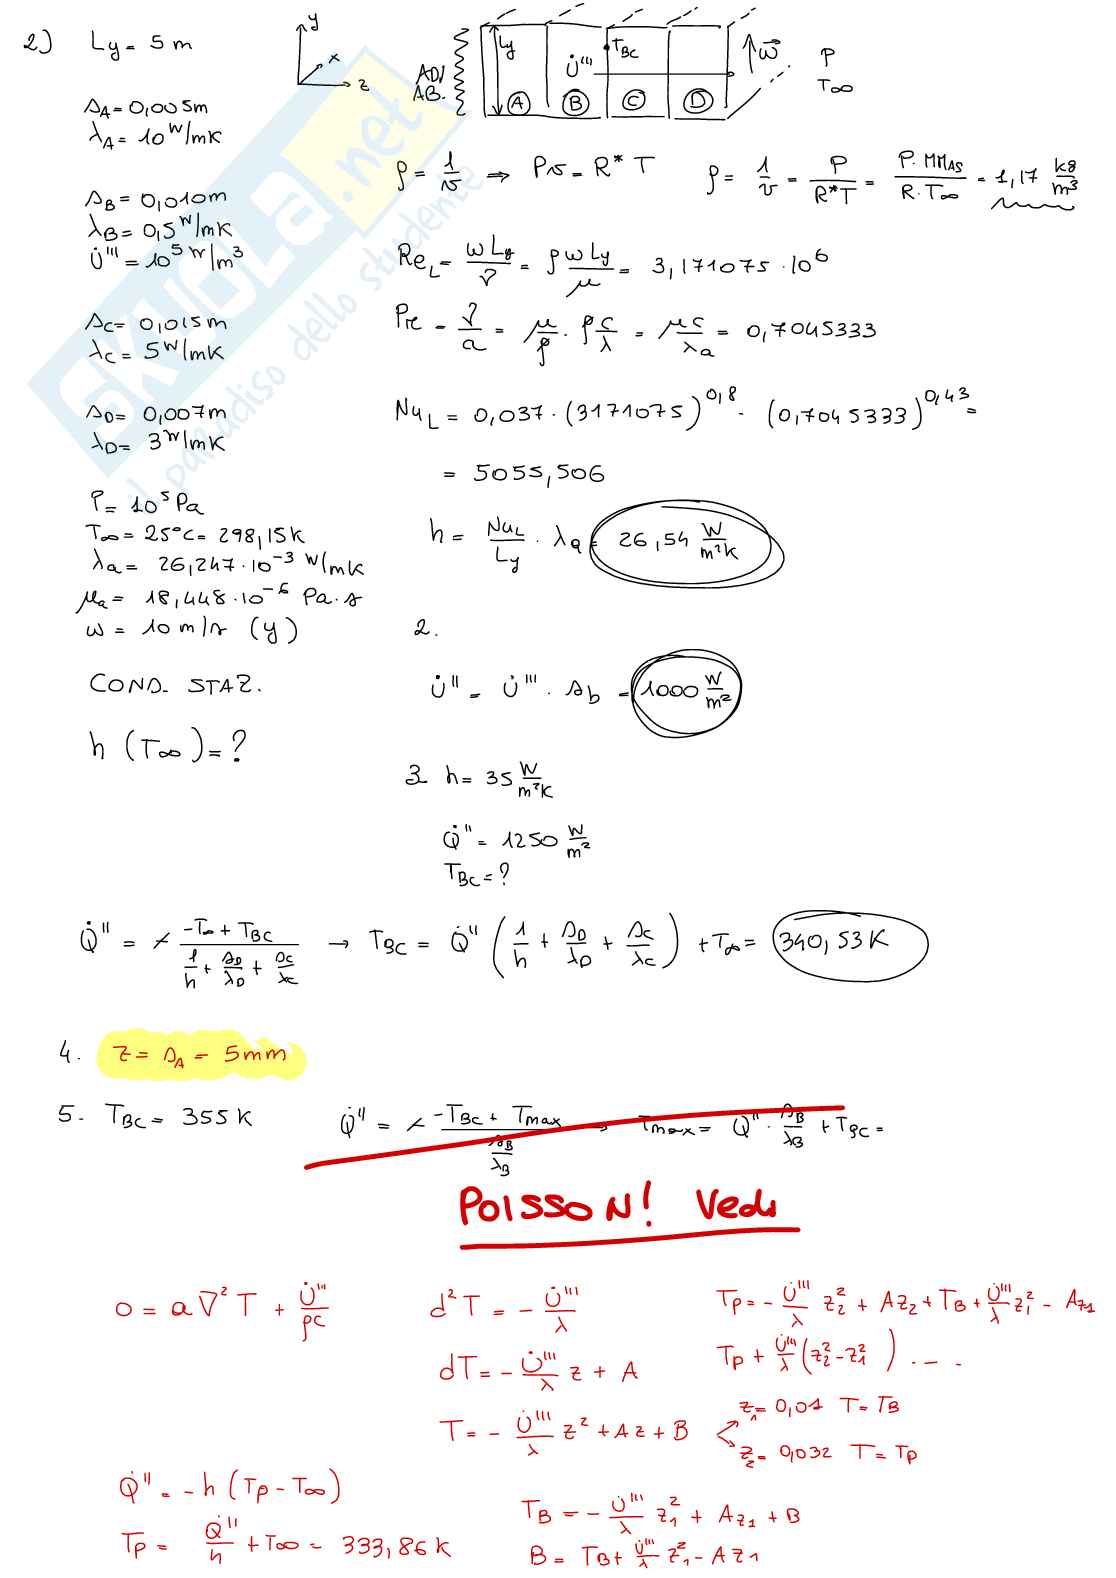 2) Ly = 5 m
y
x
z
ADIAB.
Ly
U̇'''
T_BC
A B C D
w⃗
P
T∞
s_A = 0,005m
λ_A = 10 W/mK
s_B = 0,010m
λ_B = 0,5 W/mK
U̇''' = 10⁵ W/m³
s_C = 0,015m
λ_C = 5 W/mK
s_D = 0,007m
λ_D = 3 W/mK
P = 10⁵ Pa
T∞ = 25°C = 298,15K
λ_a = 26,247·10⁻³ W/mK
μ_a = 18,448·10⁻⁶ Pa·s
w = 10 m/s (y)
COND. STAZ.
h (T∞) = ?
ρ = 1/v ⇒ Pv = R* T ρ = 1/v = P/(R*T) = (P·MM_AS)/(R·T∞) = 1,17 kg/m³
Re_L = wLy/ν = ρ wLy/μ = 3,171075·10⁶
Pr = ν/a = μ/ρ · ρc/λ = μc/λ_a = 0,7045333
Nu_L = 0,037·(3171075)^0,8 · (0,7045333)^0,43 =
= 5055,506
h = Nu_L/Ly · λ_a = 26,54 W/m²K
2.
U̇'' = U̇''' · s_b = 1000 W/m²
3. h = 35 W/m²K
Q̇'' = 1250 W/m²
T_BC = ?
Q̇'' = ≁ (-T∞ + T_BC)/(1/h + s_D/λ_D + s_C/λ_C) → T_BC = Q̇'' (1/h + s_D/λ_D + s_C/λ_C) + T∞ = 340,53 K
4. z = s_A = 5mm
5. T_BC = 355 K Q̇'' = ≁ (-T_BC + Tmax)/(s_B/λ_B) → Tmax = Q̇'' · s_B/λ_B + T_BC =
POISSON! Vedi
0 = a∇²T + U̇'''/ρc
d²T = - U̇'''/λ
dT = - U̇'''/λ z + A
T = - U̇'''/λ z² + Az + B
z₁ = 0,01 T = T_B
z₂ = 0,032 T = T_P
T_P = - U̇'''/λ z₂² + Az₂ + T_B + U̇'''/λ z₁² - Az₁
T_P + U̇'''/λ (z₂² - z₁²) . - -
Q̇'' = -h (T_P - T∞)
T_P = Q̇''/h + T∞ = 333,86 K
T_B = - U̇'''/λ z₁² + Az₁ + B
B = T_B + U̇'''/λ z₁² - Az₁
SKUOLA.net
il paradiso dello studente